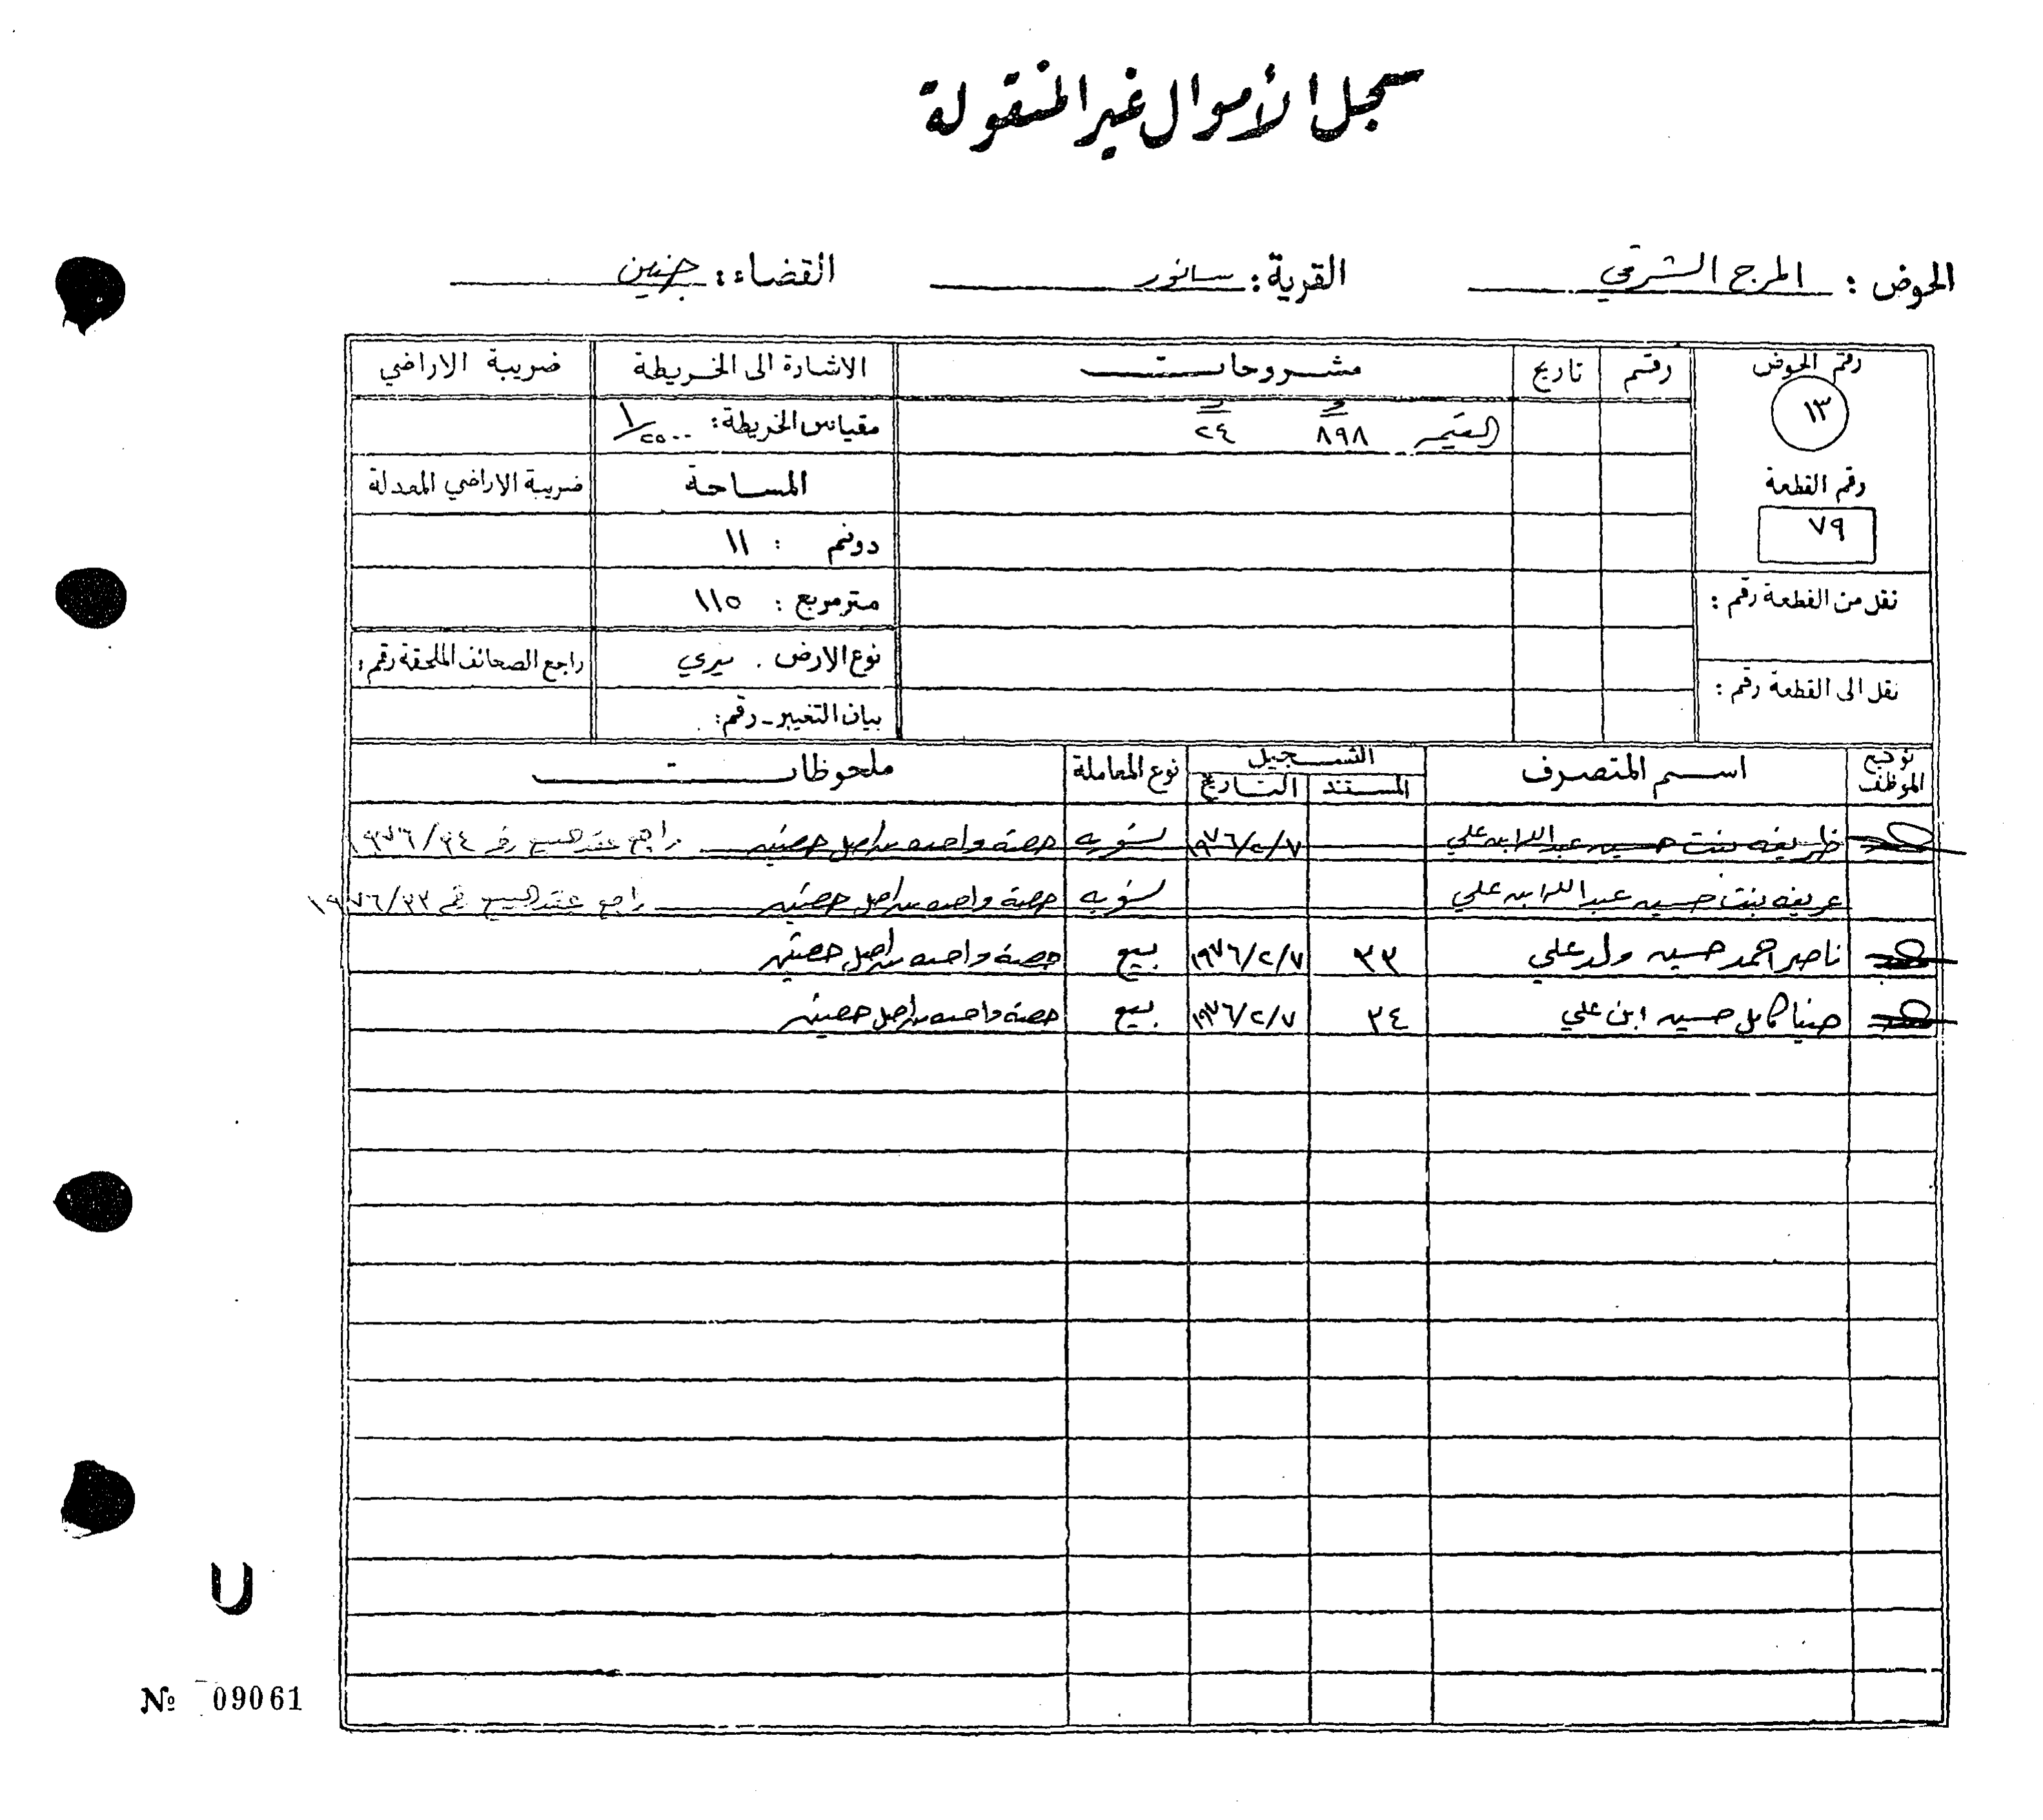 سجل الأموال غير المنقولة
الحوض : المرج الشرقي القرية : سانور القضاء : جنين
رقم الحوض رقم تاريخ مشروحات الاشارة الى الخريطة ضريبة الاراضي
١٣ القيمة ٨٩٨ ٢٤ مقياس الخريطة : ١/٢٥٠٠
رقم القطعة المساحة ضريبة الاراضي المعدلة
٧٩ دونم : ١١
نقل من القطعة رقم : متر مربع : ١١٥
نوع الارض . ميري راجع الصحائف الملحقة رقم :
نقل الى القطعة رقم : بيان التغيير - رقم :
توقيع الموظف اسم المتصرف التسجيل المستند التاريخ نوع المعاملة ملحوظات
ظريفه بنت حسين عبد الله ابن علي ١٩٧٦/٢/٧ تسويه حصة واحده من اصل حصتين راجع عقد البيع رقم ١٩٧٦/٣٤
عريفه بنت حسين عبد الله ابن علي تسويه حصة واحده من اصل حصتين راجع عقد البيع رقم ١٩٧٦/٣٣
ناصر احمد حسين ولد علي ٣٣ ١٩٧٦/٢/٧ بيع حصة واحده من اصل حصتين
كامل حسين ابن علي ٣٤ ١٩٧٦/٢/٧ بيع حصة واحده من اصل حصتين
U
№ 09061